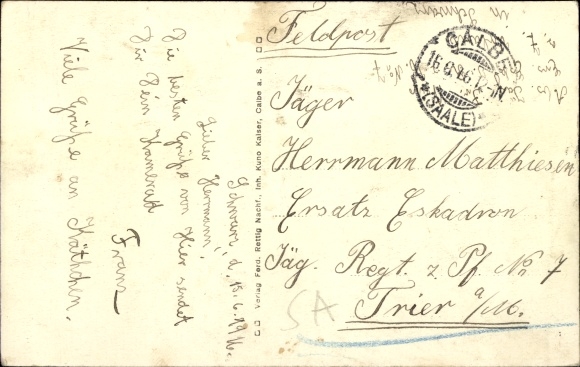 Schwarz, d. 15.6.1916.
Lieber Herrmann!
Die besten Grüße von Hier sendet
Dir Dein Kamerad
Franz
Viele Grüße an Käthchen.
Verlag Ferd. Rettig Nachf., Inh. Kuno Kaiser, Calbe a. S.
Feldpost
CALBE
(SAALE)
Jäger
Herrmann Matthiesen
Ersatz Eskadron
Jäg. Regt. z. Pf. No. 7
Trier a/M.
SA